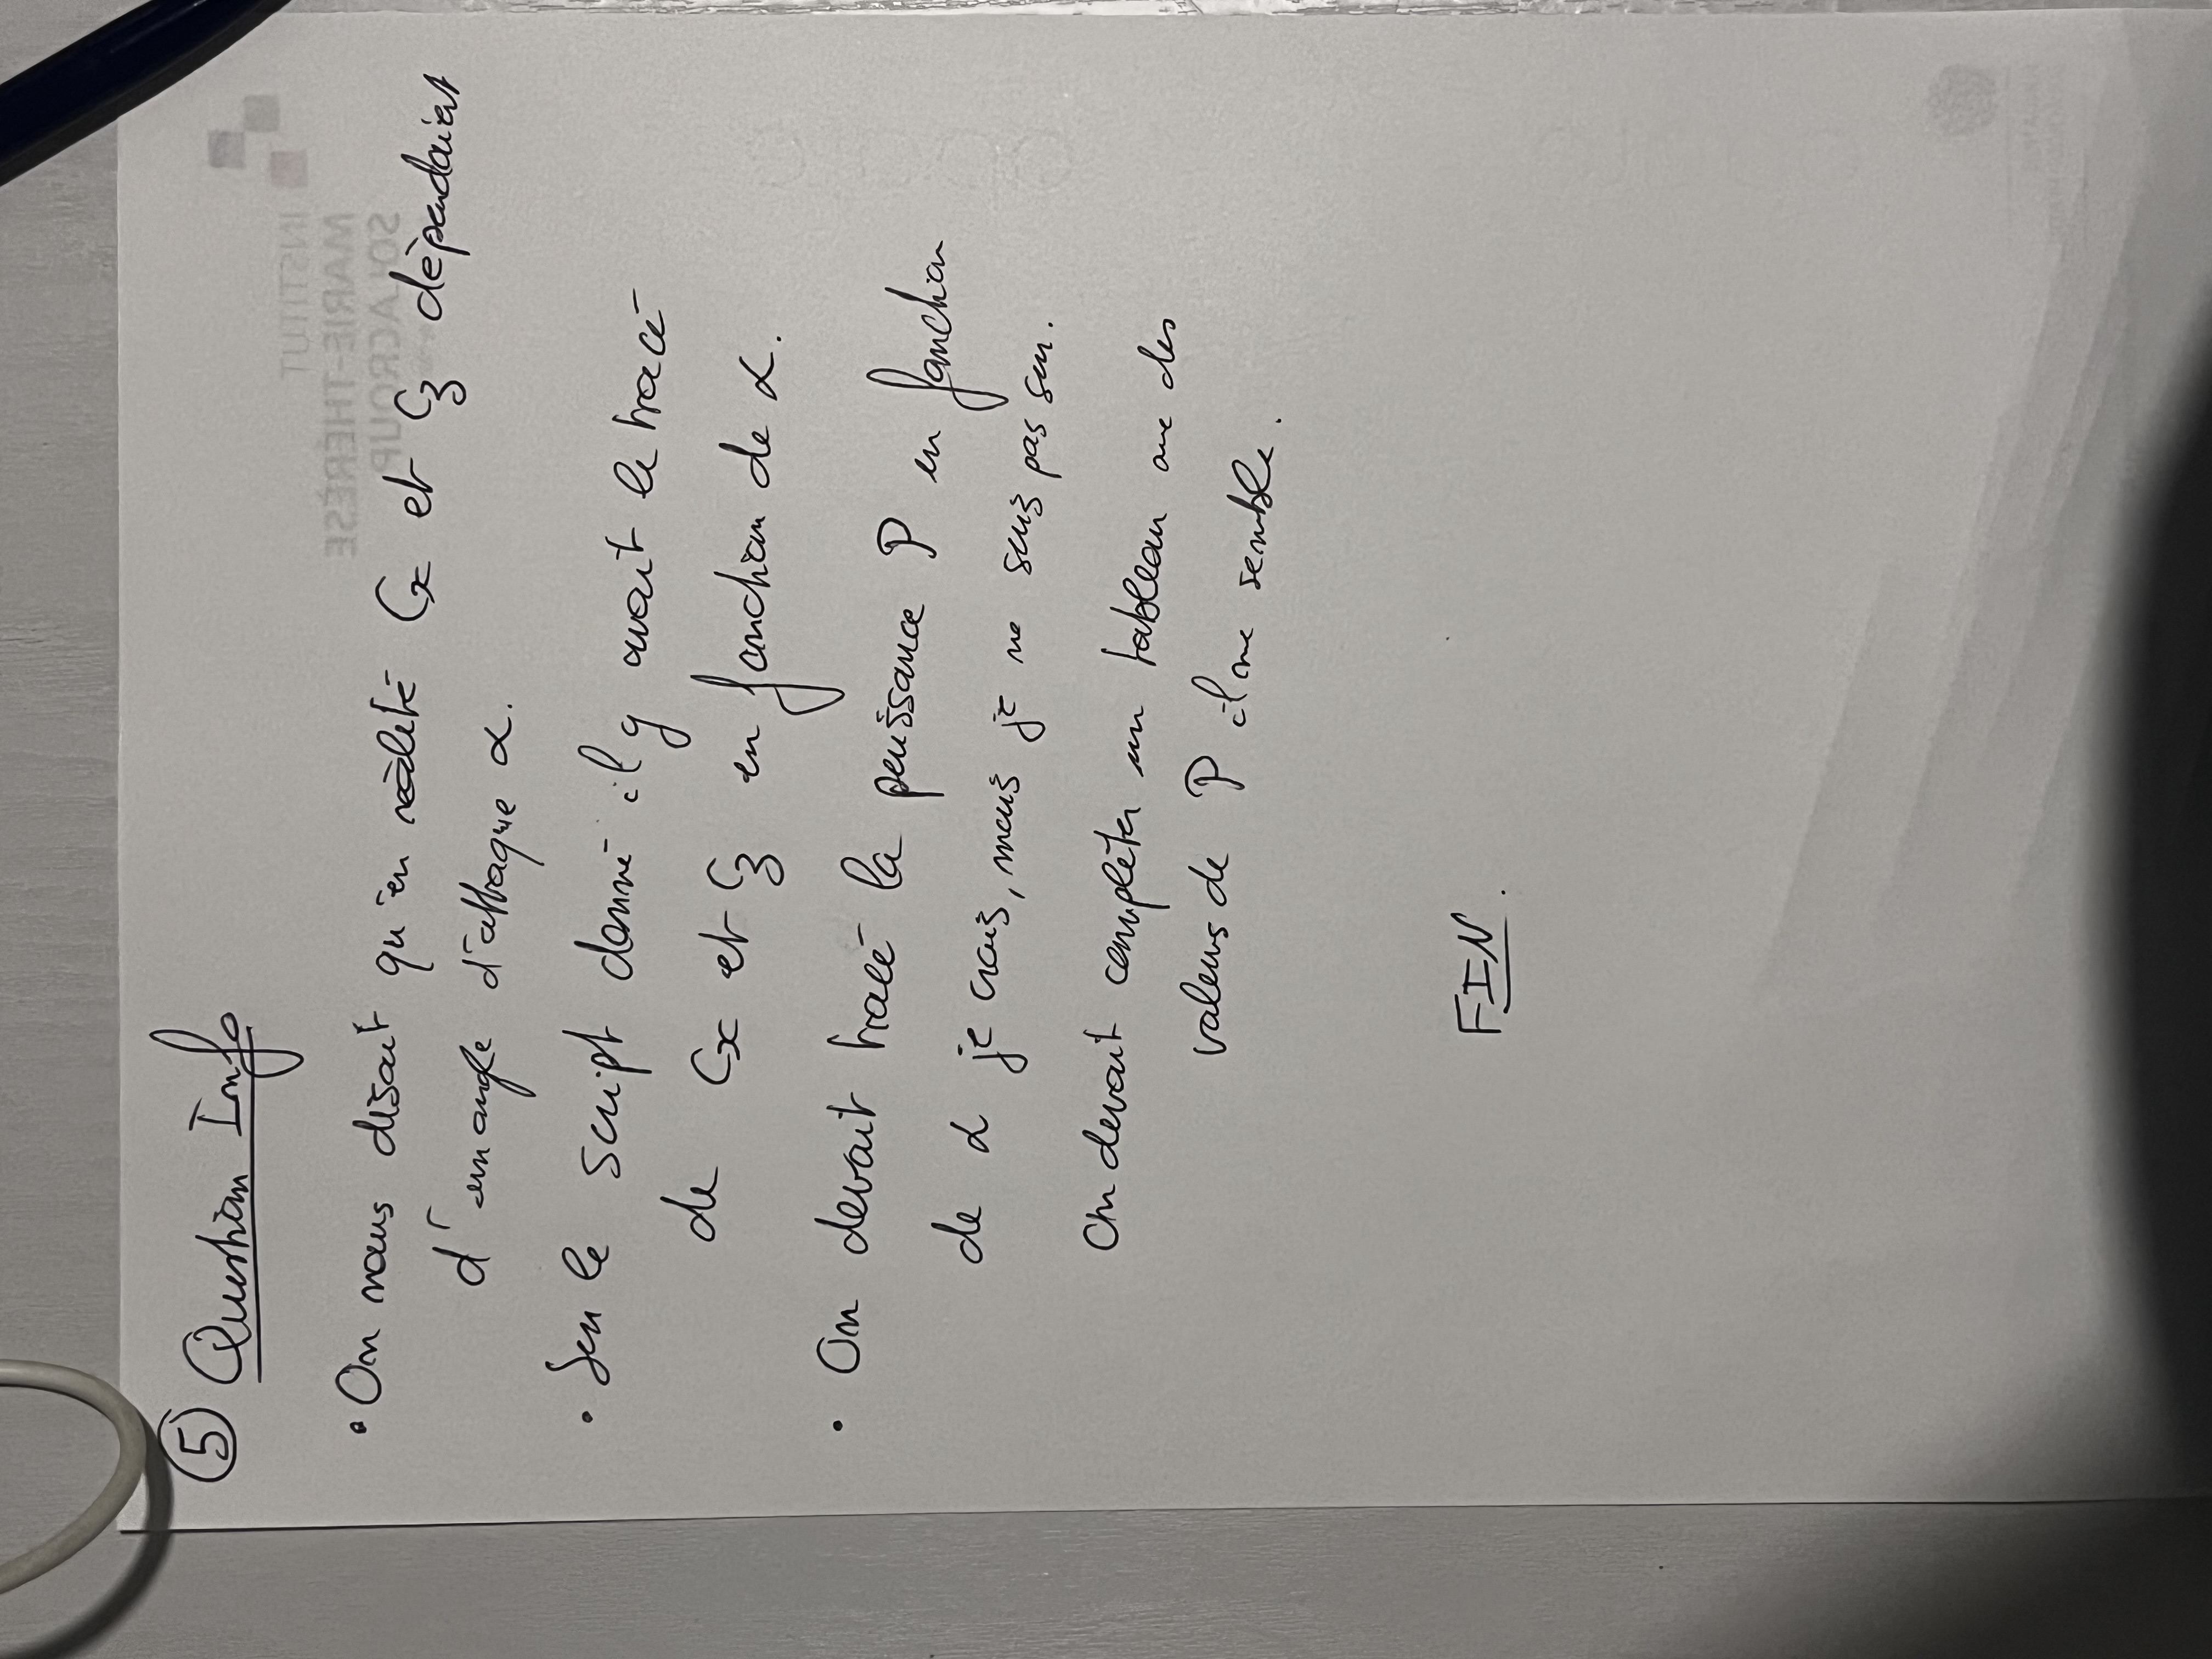 ⑤ Question Info
• On nous disait qu'en réalité Cx et Cz dépendaient
d'un angle d'attaque α.
• Sur le script donné il y avait le tracé
de Cx et Cz en fonction de α.
• On devait tracé la puissance P en fonction
de α je crois, mais je ne suis pas sur.
On devait compléter un tableau avec des
valeurs de P il me semble.
FIN.
INSTITUT
MARIE-THÉRÈSE
SOLACROUP